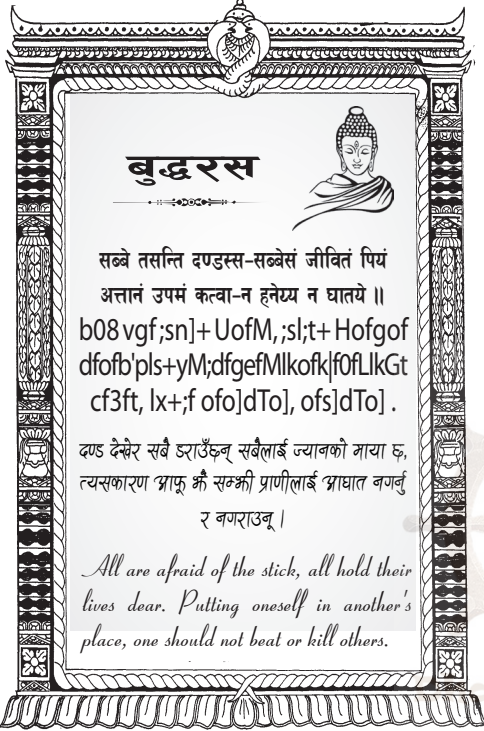 बुद्धरस
सब्बे तसन्ति दण्डस्स-सब्बेसं जीवितं पियं
अत्तानं उपमं कत्वा-न हनेय्य न घातये ॥
b08 vgf ;sn]+ UofM, ;sl;t+ Hofgof
dfofb'pls+yM;dfgefMlkofk|f0fLlkGt
cf3ft, lx+;f ofo]dTo], ofs]dTo] .
दण्ड देखेर सबै डराउँछन् सबैलाई ज्यानको माया छ,
त्यसकारण आफू झैं सम्झी प्राणीलाई आघात नगर्नु
र नगराउनू ।
All are afraid of the stick, all hold their
lives dear. Putting oneself in another's
place, one should not beat or kill others.